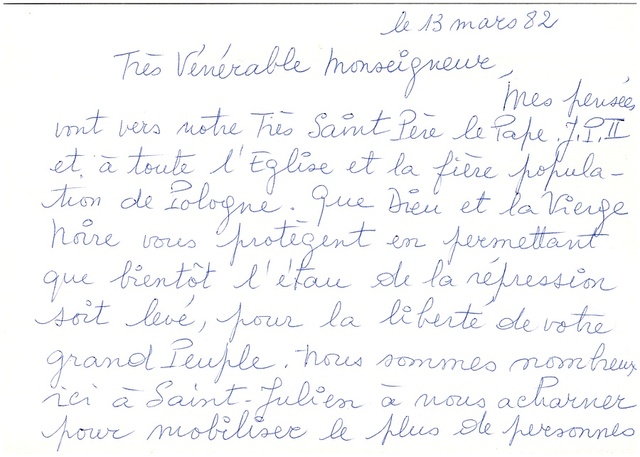 le 13 mars 82
Très Vénérable Monseigneur,
Mes pensées
vont vers notre Très Saint Père le Pape J.P.II
et à toute l'Eglise et la fière popula-
tion de Pologne. Que Dieu et la Vierge
Noire vous protègent en permettant
que bientôt l'étau de la répression
soit levé, pour la liberté de votre
grand Peuple. Nous sommes nombreux
ici à Saint-Julien à nous acharner
pour mobiliser le plus de personnes